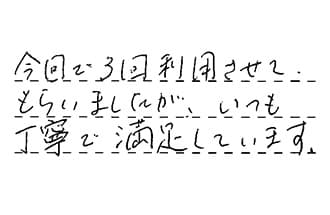 今回で3回利用させて
もらいましたが、いつも
丁寧で満足しています。